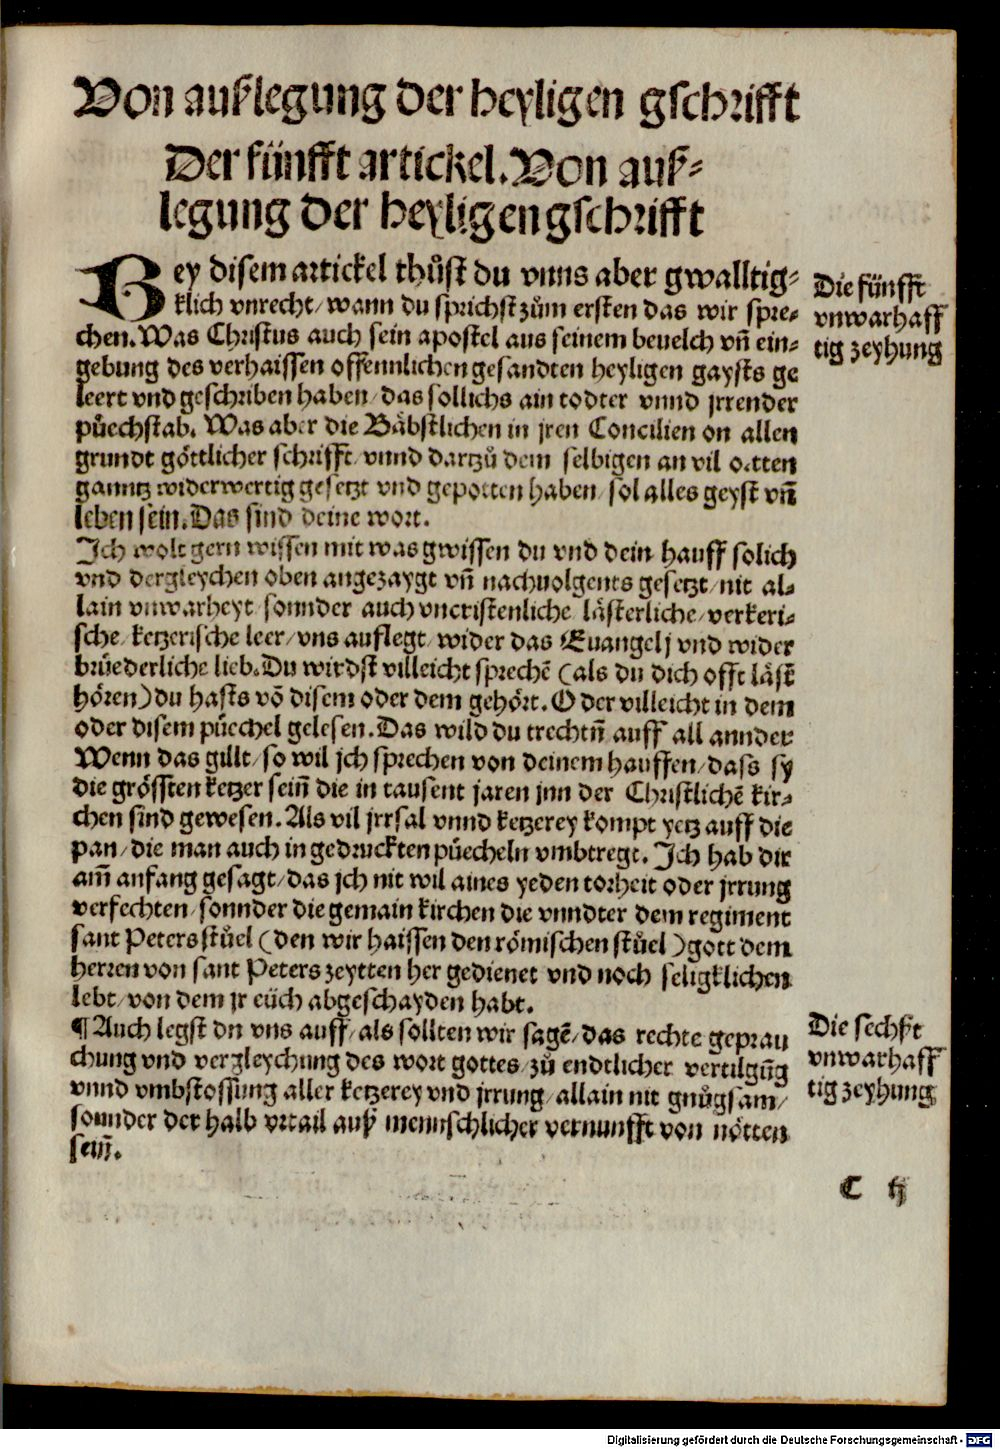 Von außlegung der heyligen gschrifft
Der fünfft artickel. Von auß⸗
legung der heyligen gschrifft
Bey disem artickel thůst du vnns aber gwalltig⸗
klich vnrecht/ wann du sprichst zům ersten das wir spre⸗
chen. Was Christus auch sein apostel aus seinem beuelch vñ ein⸗
gebung des verhaissen offennlichen gesandten heyligen gaysts ge
leert vnd geschriben haben/ das sollichs ain todter vnnd jrrender
půechstab. Was aber die Bäbstlichen in jren Concilien on allen
grundt göttlicher schrifft/ vnnd dartzů dem selbigen an vil orten
ganntz widerwertig gesetzt vnd gepotten haben/ sol alles geyst vñ
leben sein. Das sind deine wort.
Ich wolt gern wissen mit was gwissen du vnd dein hauff solich
vnd dergleychen oben angezaygt vñ nachuolgents gesetzt/ nit al⸗
lain vnwarheyt/ sonnder auch vncristenliche/ lästerliche/ verkeri⸗
sche/ ketzerische leer/ vns auflegt/ wider das Euangelj vnd wider
brüederliche lieb. Du wirdst villeicht sprechē (als du dich offt läst
hören) du hasts vō disem oder dem gehört. Oder villeicht in dem
oder disem püechel gelesen. Das wild du trechtñ auff all annder
Wenn das gillt/ so wil jch sprechen von deinem hauffen/ dass sy
die grössten ketzer seiñ die in tausent jaren jnn der Christlichē kir⸗
chen sind gewesen. Als vil jrrsal vnnd ketzerey kompt yetz auff die
pan/ die man auch in gedruckten püecheln vmbtregt. Ich hab dir
am̃ anfang gesagt/ das jch nit wil aines yeden torheit oder jrrung
verfechten/ sonnder die gemain kirchen die vnndter dem regiment
sant Peters stůel (den wir haissen den römischen stůel) gott dem
herren von sant Peters zeytten her gedienet vnd noch seligklichen
lebt/ von dem jr eüch abgeschayden habt.
¶ Auch legst du vns auff/ als sollten wir sagē/ das rechte geprau
chung vnd vergleychung des wort gottes/ zů endtlicher vertilgūg
vnnd vmbstossung aller ketzerey vnd jrrung/ allain nit gnůgsam/
sonnder der halb vrtail auß mennschlicher vernunfft von nötten
seiñ.
Die fünfft
vnwarhaff
tig zeyhung
Die sechßt
vnwarhaff
tig zeyhung
C ij
Digitalisierung gefördert durch die Deutsche Forschungsgemeinschaft - DFG